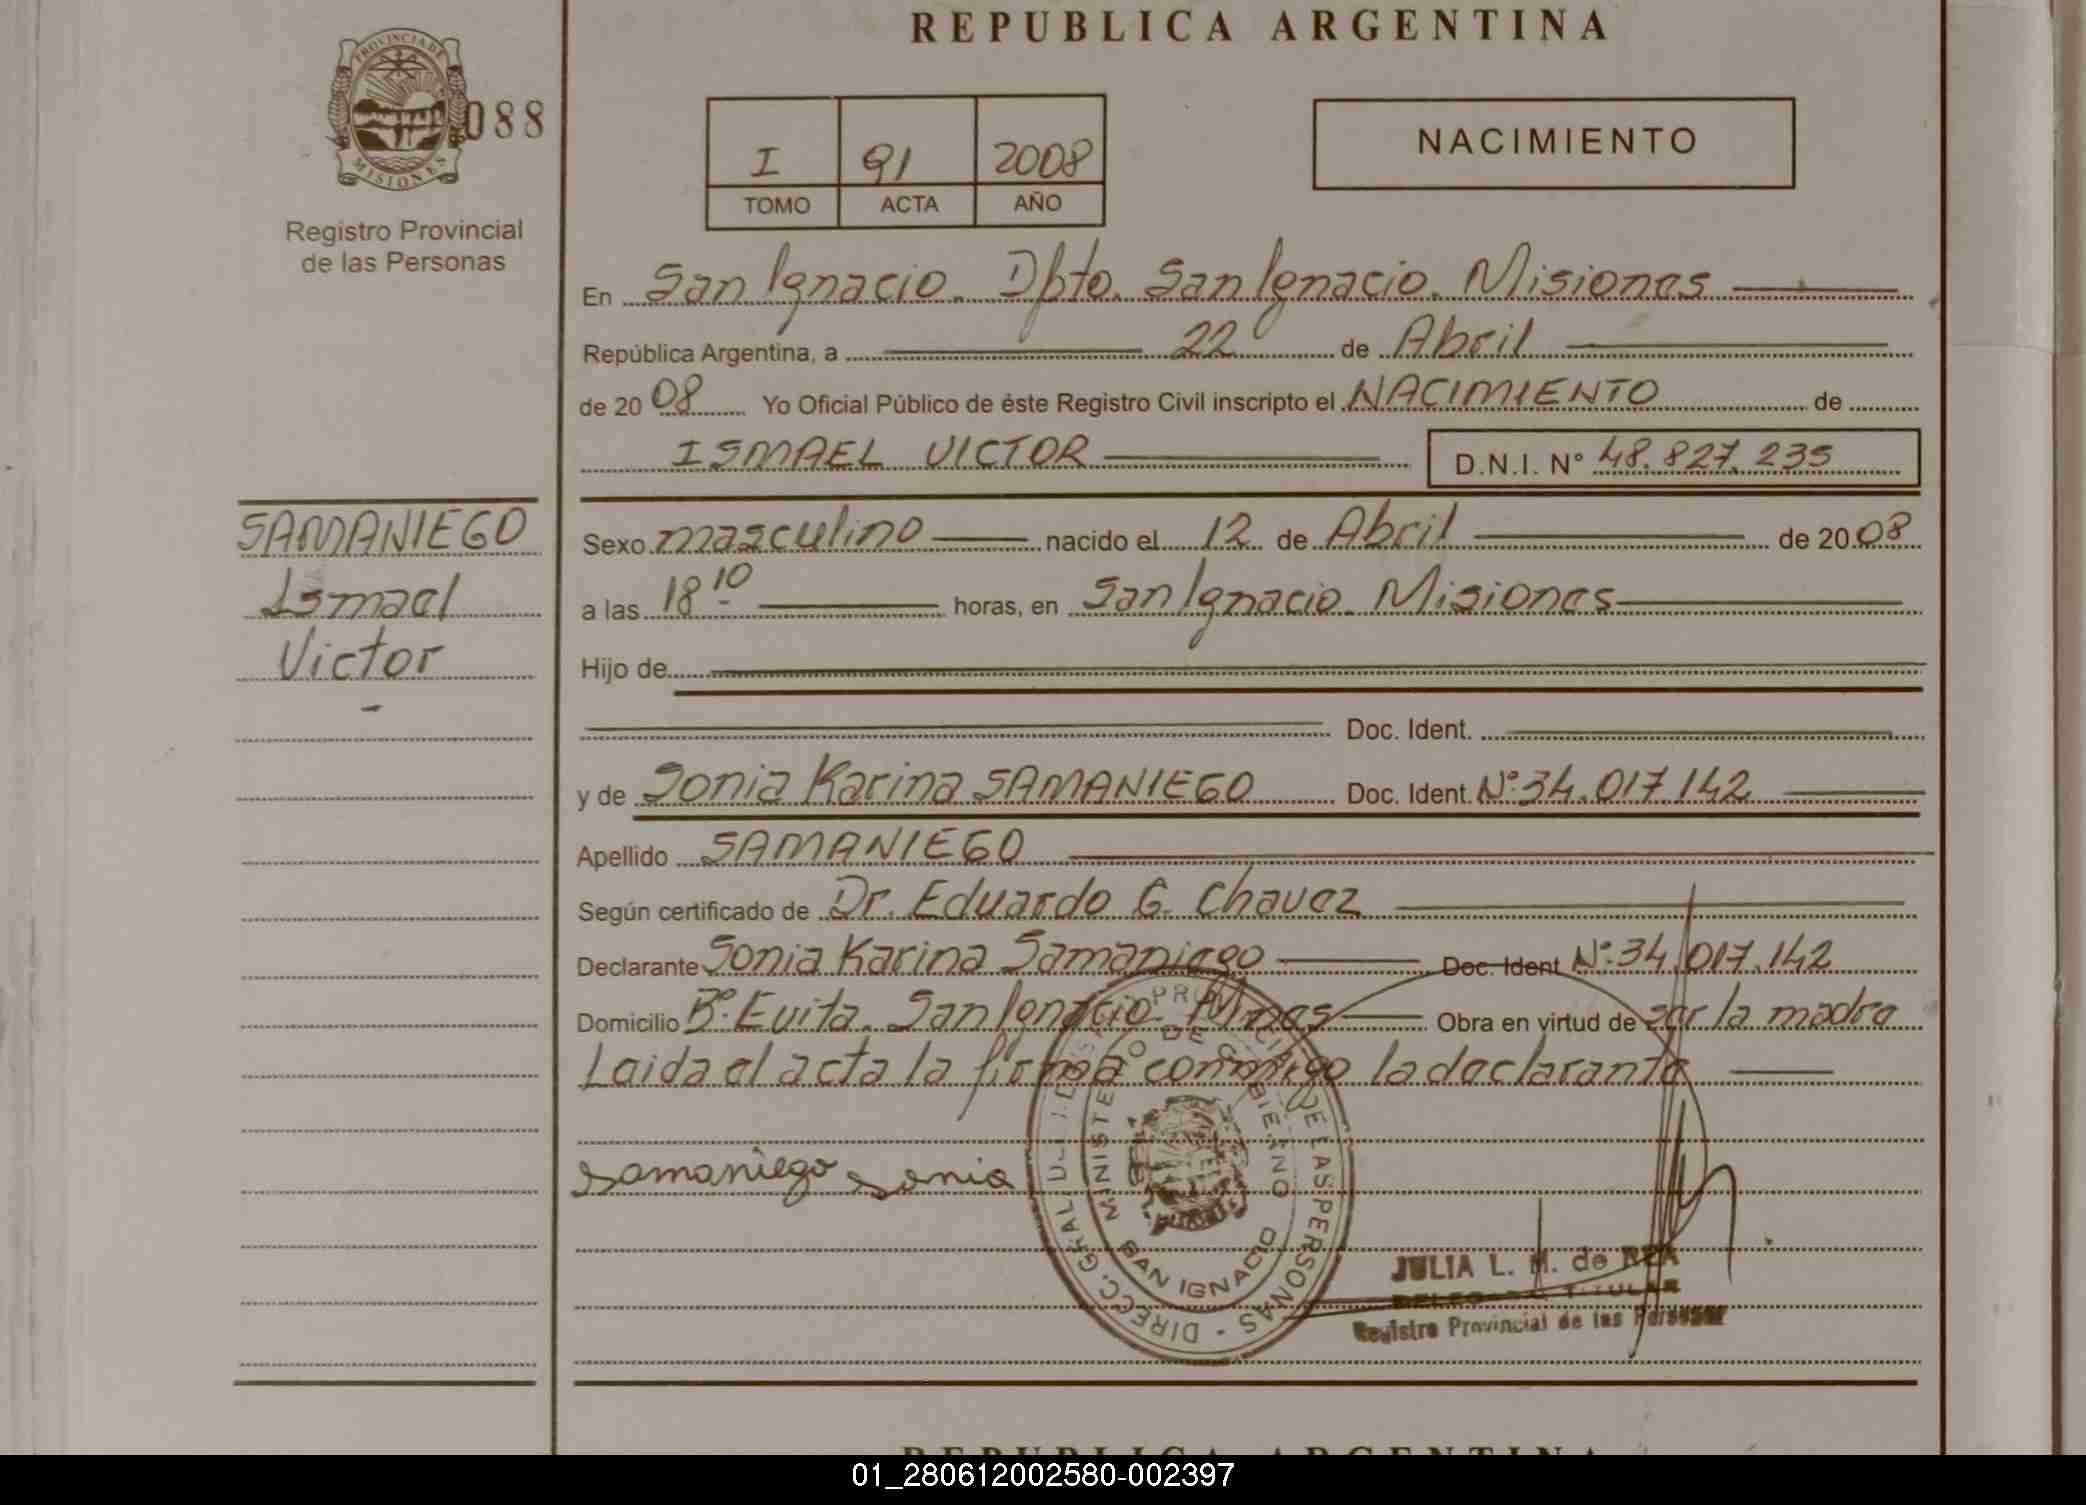 REPUBLICA ARGENTINA
PROVINCIA DE
MISIONES
088
Registro Provincial
de las Personas
I 91 2008
TOMO ACTA AÑO
NACIMIENTO
En San Ignacio. Dpto. San Ignacio. Misiones
República Argentina, a 22 de Abril
de 2008 Yo Oficial Público de éste Registro Civil inscripto el NACIMIENTO de
ISMAEL VICTOR D.N.I. N° 48.827.235
SAMANIEGO
Ismael
Victor
Sexo masculino nacido el 12 de Abril de 2008
a las 18 10 horas, en San Ignacio. Misiones
Hijo de
Doc. Ident.
y de Sonia Karina SAMANIEGO Doc. Ident. Nº 34.017.142
Apellido SAMANIEGO
Según certificado de Dr. Eduardo G. Chavez
Declarante Sonia Karina Samaniego Doc. Ident Nº 34.017.142
Domicilio Bº Evita. San Ignacio Mnes Obra en virtud de ser la madre
Leida el acta la firma conmigo la declarante
Samaniego Sonia
MINISTERIO DE GOBIERNO
SAN IGNACIO
DE LAS PERSONAS - DIRECC. GRAL
JULIA L. M. de REA
DELEGADA TITULAR
Registro Provincial de las Personas
REPUBLICA ARGENTINA
01_280612002580-002397